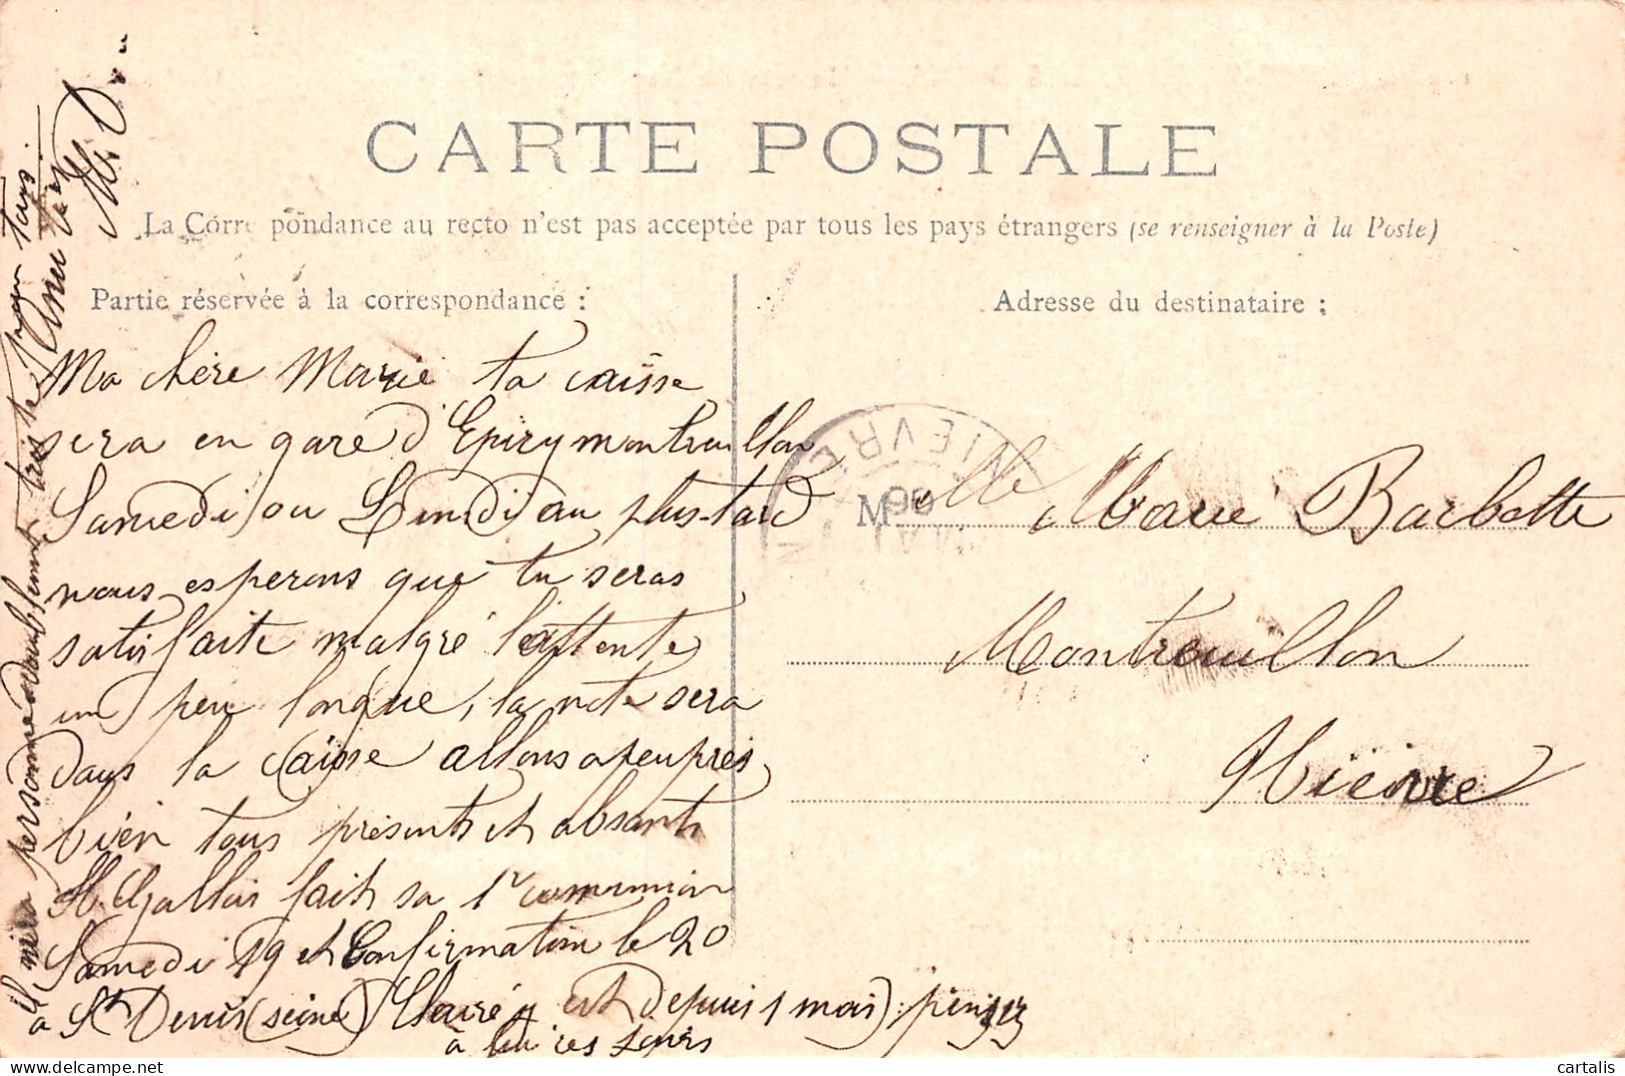 CARTE POSTALE
La Correspondance au recto n'est pas acceptée par tous les pays étrangers (se renseigner à la Poste)
Partie réservée à la correspondance :
Adresse du destinataire :
Ma chère Marie ta caisse
sera en gare d'Epiry montreuillon
Samedi ou Lundi au plus tard
nous esperons que tu seras
satisfaite malgré l'attente
un peu longue, la note sera
dans la Caisse allons a peu pres
bien tous présents et absants
H. Gallois fait sa 1r communion
Samedi 19 et Confirmation le 20
a St Denis (seine) Claire y est depuis 1 mois pensez
à lui ces jours
il n'ira personne
M. D
NIEVRE
06
Melle Marie Barbotte
Montreuillon
Nièvre
cartalis